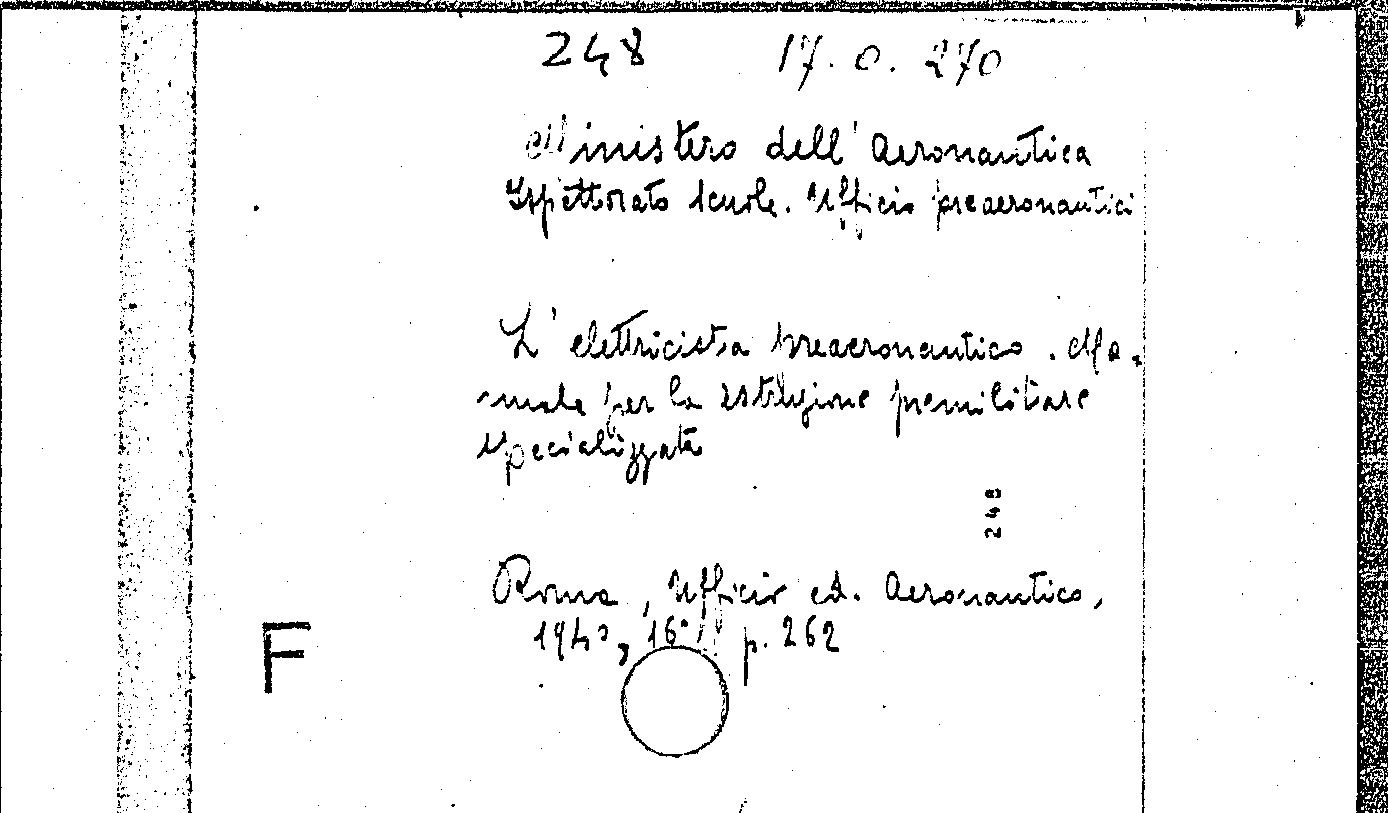 248 17. 0. 270
Ministero dell' Aeronautica
Ispettorato Scuole. Ufficio preaeronautici
L' elettricista preaeronautico. Ma-
nuale per la istruzione premilitare
specializzata
248
Roma, Ufficio ed. Aeronautico,
16° p. 262
F